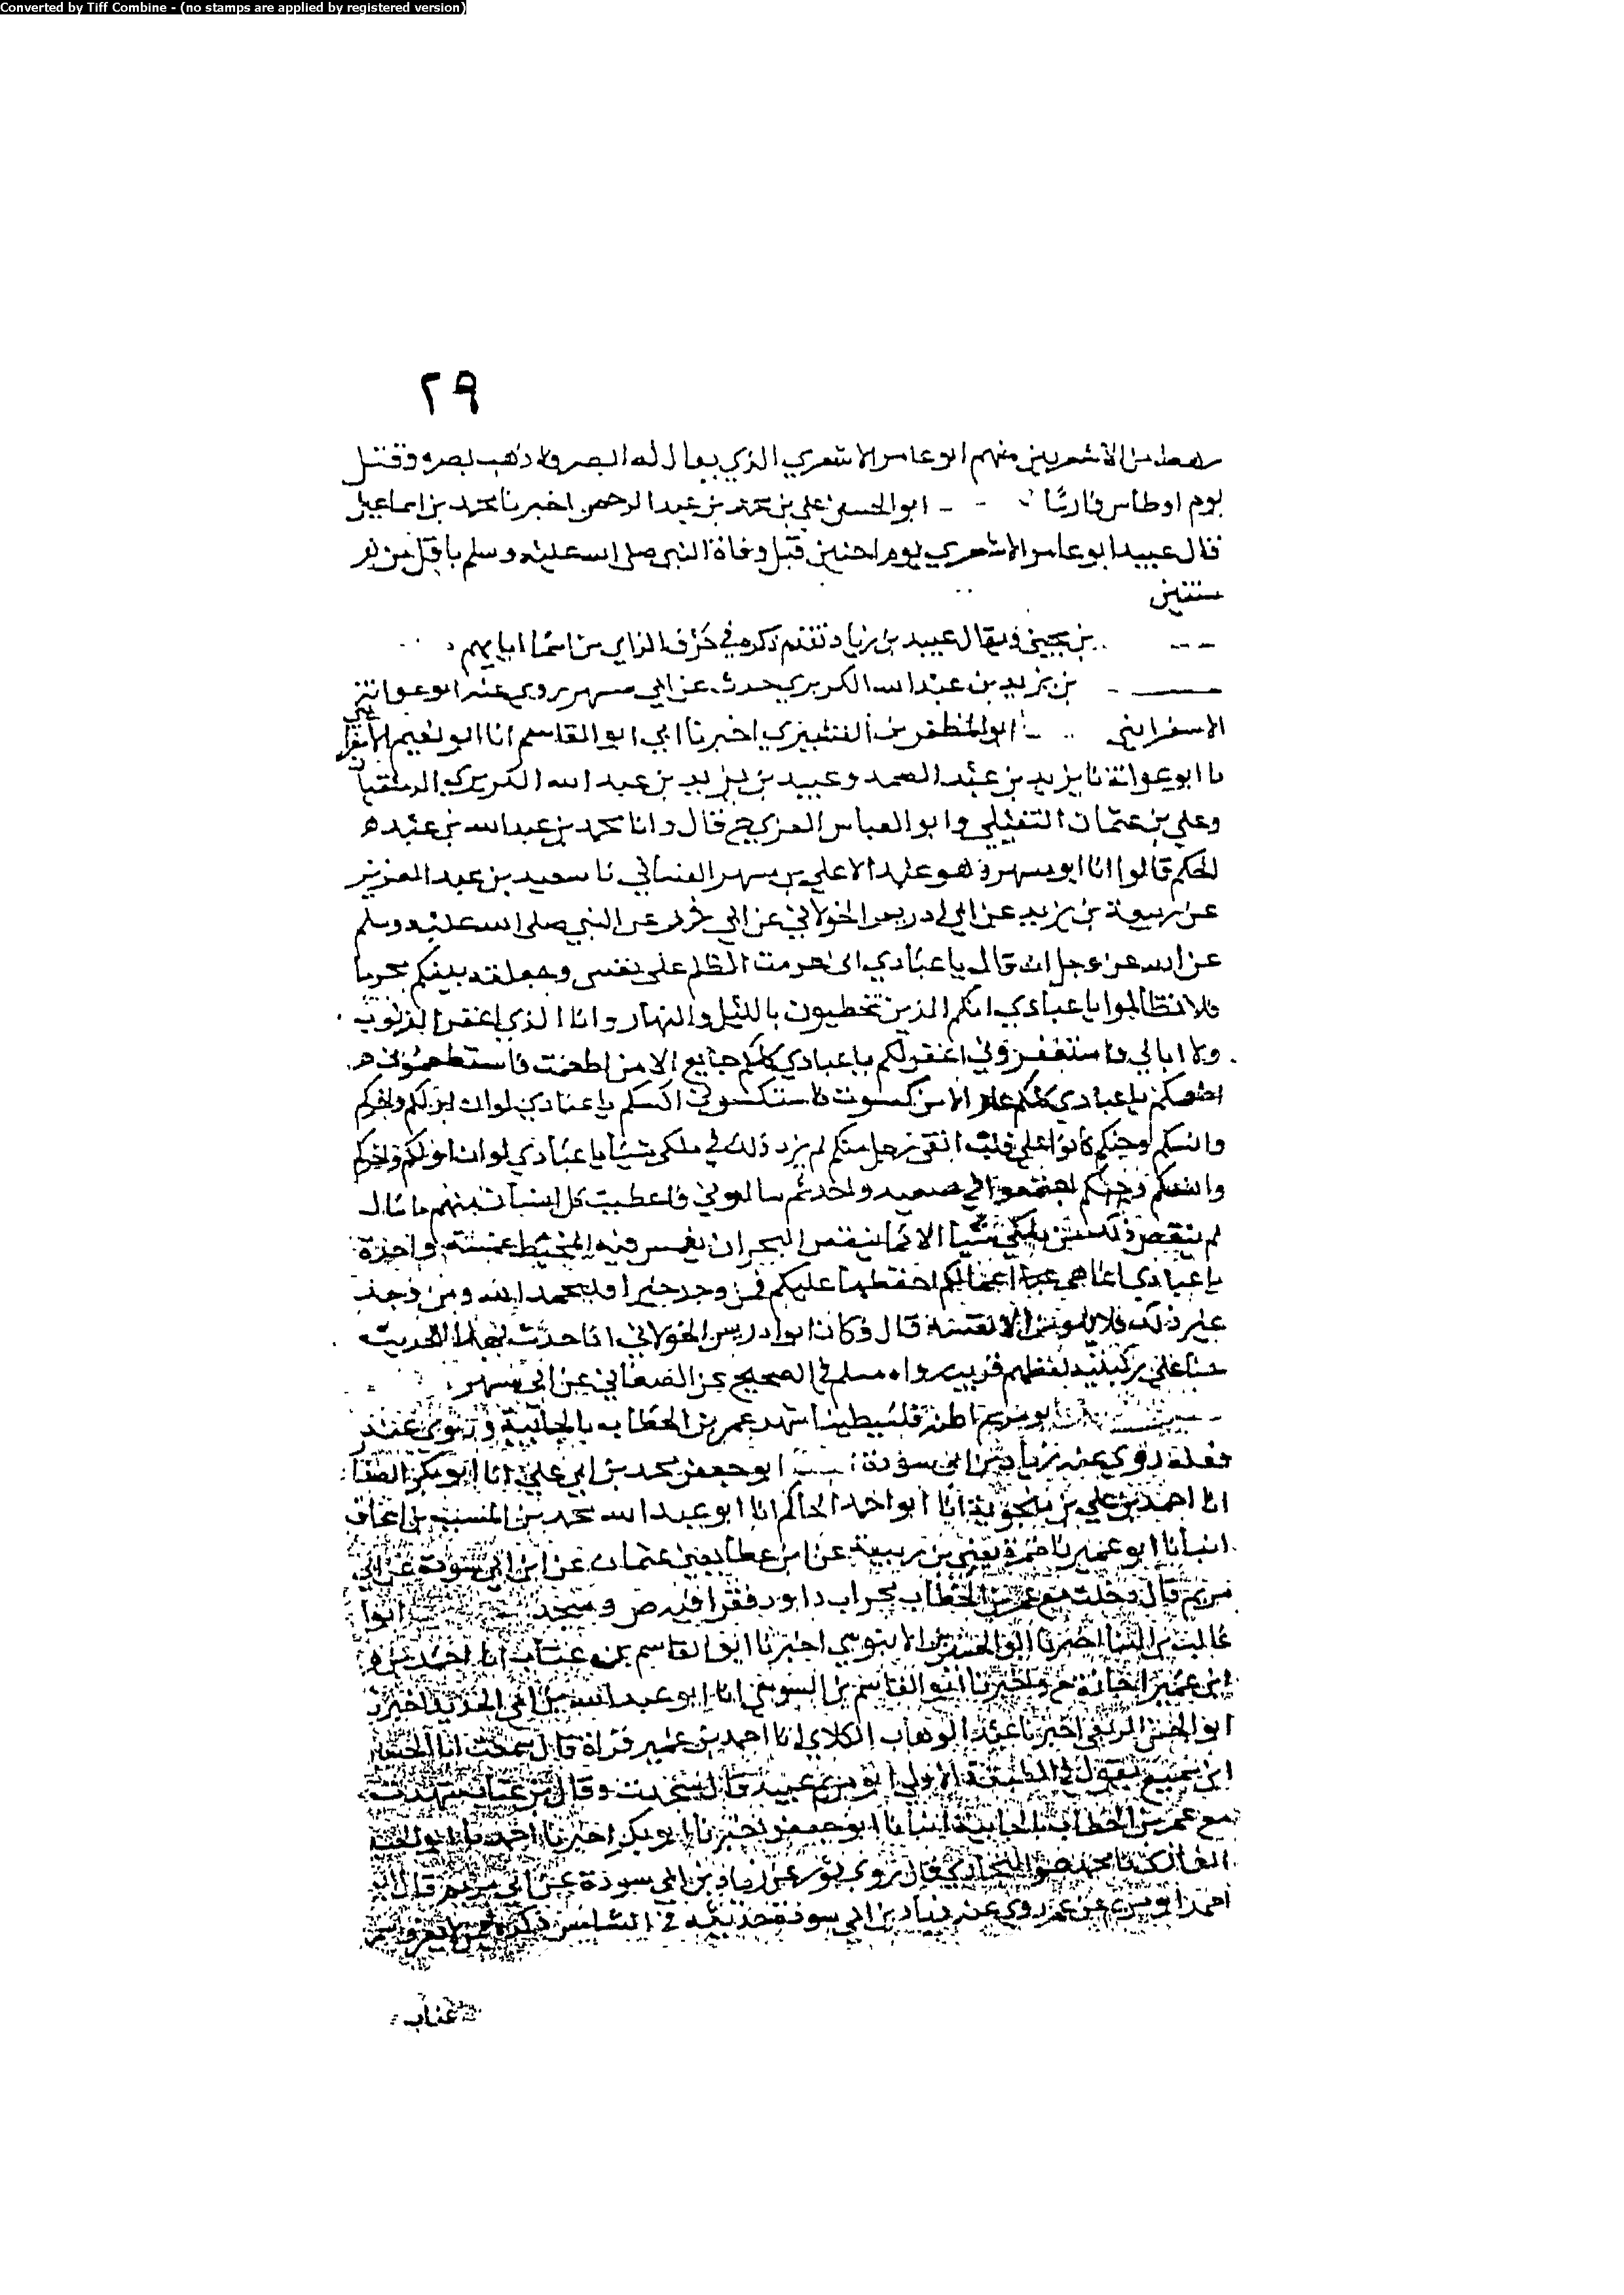 Converted by Tiff Combine - (no stamps are applied by registered version)
٢٩
رهط من الاشعريين منهم ابو عامر الاشعري الذي يقال له ذهب بصره وقتل
يوم اوطاس ابو الحسن علي بن محمد بن عبد الرحمن اخبرنا محمد بن اسماعيل
قال عبيد ابو عامر الاشعري يوم حنين قبل وفاة النبي صلى الله عليه وسلم باقل من
سنتين
بن يحيى ويقال عبيد بن زياد تقدم ذكره في حرف الزاي من اسما ابايهم
بن يزيد بن عبد الله الكريزي حدث عن ابي مسهر روى عنه ابو عوانة
الاسفرايني ابو المظفر بن القشيري اخبرنا ابي ابو القاسم انا ابو نعيم
نا ابو عوانة نا يزيد بن عبد الصمد وعبيد بن يزيد بن عبد الله الدمشقيان
وعلي بن عثمان النفيلي وابو العباس الغزي ح قال وانا محمد بن عبد الله بن عبد
الحكم قالوا انا ابو مسهر وهو عبد الاعلى بن مسهر الغساني نا سعيد بن عبد العزيز
عن ربيعة بن يزيد عن ابي ادريس الخولاني عن ابي ذر عن النبي صلى الله عليه وسلم
عن الله عز وجل انه قال يا عبادي اني حرمت الظلم على نفسي وجعلته بينكم محرما
فلا تظالموا يا عبادي انكم الذين تخطيون بالليل والنهار وانا الذي اغفر الذنوب
ولا ابالي فاستغفروني اغفر لكم يا عبادي كلكم جايع الا من اطعمت فاستطعموني
اطعمكم يا عبادي كلكم عار الا من كسوت فاستكسوني اكسكم يا عبادي لو ان اولكم واخركم
وانسكم وجنكم كانوا على قلب اتقى رجل منكم لم يزد ذلك في ملكي شيا يا عبادي لو ان اولكم واخركم
وانسكم وجنكم اجتمعوا في صعيد واحد ثم سالوني فاعطيت كل انسان منهم ما سال
لم ينقص ذلك من ملكي شيا الا كما ينقص البحر ان يغمس فيه المخيط غمسة واحدة
يا عبادي انما هي اعمالكم احفظها عليكم فمن وجد خيرا فليحمد الله ومن وجد
غير ذلك فلا يلومن الا نفسه قال وكان ابو ادريس الخولاني اذا حدث بهذا الحديث
جثا على ركبتيه لفظهم قريب رواه مسلم في الصحيح عن الصغاني عن ابي مسهر
ابو مريم اظنه فلسطينيا شهد عمر بن الخطاب بالجابية وروى عنه
فعله روى عنه زياد بن ابي سودة ابو جعفر محمد بن ابي علي انا ابو بكر الصفار
انا احمد بن علي بن منجويه انا ابو احمد الحاكم انا ابو عبد الله محمد بن المسيب بن اسحاق
انبانا ابو عمير نا ضمرة يعني بن ربيعة عن ابن عطا يعني عثمان عن ابن ابي سودة عن ابي
مريم قال دخلت مع عمر بن الخطاب محراب داود فقرا فيه ص وسجد ابو
غالب بن البنا اخبرنا ابو الحسين بن الابنوسي اخبرنا ابو القاسم بن عتاب انا احمد بن
ابن عمير اجازة ح واخبرنا ابو القاسم بن السوسي انا ابو عبد الله بن ابي الحديد اخبرنا
ابو الحسن الربعي اخبرنا عبد الوهاب الكلابي انا احمد بن عمير قراة قال سمعت ابا الحسن
ابن سميع يقول في الطبقة الاولى ابو مريم عبيد قال وقال بن عتاب شهدت
مع عمر بن الخطاب بالجابية انبانا ابو جعفر اخبرنا ابو بكر اخبرنا احمد نا ابو احمد
نا محمد البخاري قال روى ثور عن زياد بن ابي سودة عن ابي مريم قال ابو
احمد ابو مريم عن عمر روى عنه زياد بن ابي سودة حديثه في الشاميين
عتاب